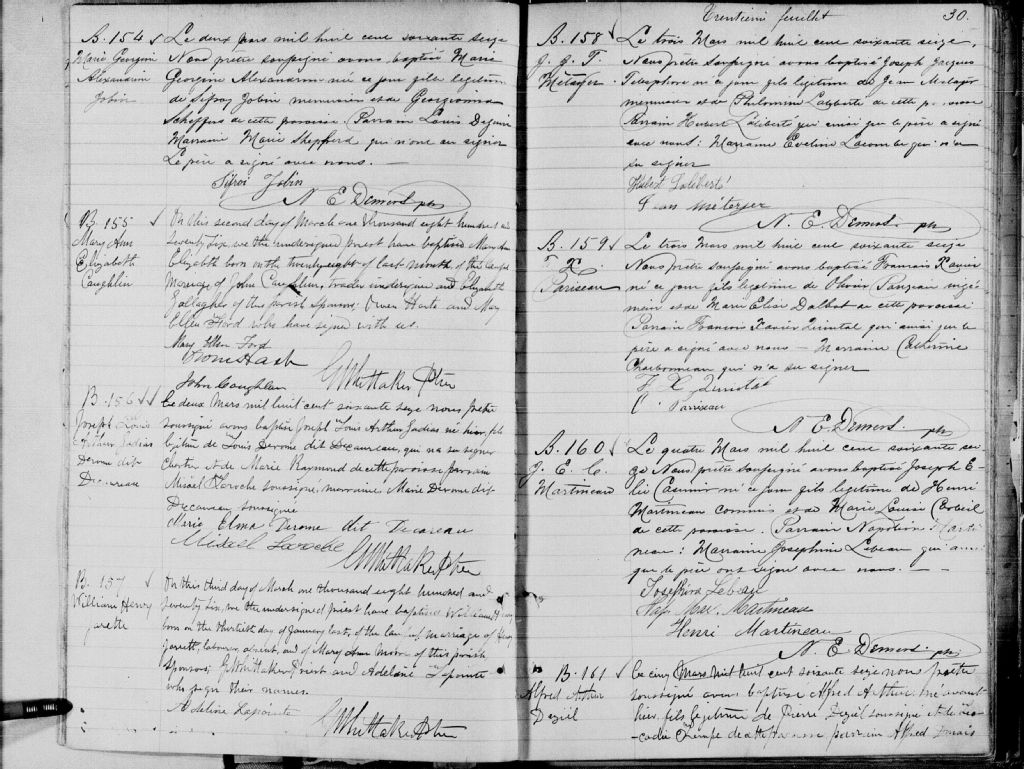 B. 154
Marie Georgine
Alexandrin
Jobin
Le deux Mars mil huit cent soixante seize
Nous prêtre soussigné avons baptisé Marie
Georgine Alexandrin né ce jour fils legitime
de Sifroy Jobin menuisier et de Georgianna
Scheffers de cette paroisse. Parrain Louis
Marraine Marie Shepherd qui n'ont su signer
Le père a signé avec nous. —
Sifroi Jobin
N. E. Demers ptr
B. 155
Mary Ann
Elizabeth
Coughlin
On this second day of March one thousand eight hundred and
seventy six, we the undersigned Priest have baptised Mary Ann
Elizabeth born on the twenty eight of last month of the lawful
Marriage of John Coughlin, trader undersigned and Elizabeth
Gallagher of this parish Sponsors: Owen Harte and Mary
Ellen Ford who have signed with us.
Mary Ellen Ford
John Coughlan
G Whittaker Ptre
B. 156
Joseph Louis
Arthur Zadias
Derome dit
Le deux Mars mil huit cent soixante seize nous prêtre
soussigné avons baptisé Joseph Louis Arthur Zadias né hier, fils
légitime de Louis Derome dit Decareau, qui n'a su signer
et de Marie Raymond de cette paroisse parrain
Misael Laroche soussigné, marraine Marie Derome dit
Decareau soussignée
Marie Elma Derome dit Decareau
Misael Laroche
G Whittaker Ptre
B. 157
William Henry
Jarette
On this third day of March one thousand eight hundred and
seventy six, we the undersigned priest have baptised William Henry
born on the thirtieth day of January last, of the lawful marriage of Henry
Jarett, labourer, absent, and of Mary Ann Moore of this parish
Sponsors: G. Whittaker, Priest and Adeline Lapointe
who sign their names.
Adeline Lapointe
G Whittaker Ptre
Trentième feuillet
30.
B. 158
J. J. T.
Métayer
Le trois Mars mil huit cent soixante seize,
Nous prêtre soussigné avons baptisé Joseph Jacques
Telesphore né ce jour fils legitime de Jean Metayer
menuisier et de Philomène Laliberté de cette paroisse
Parrain Hubert Laliberté qui ainsi que le père a signé
avec nous: Marraine Eveline Lacombe qui n'a
su signer
Hubert Laliberté
Jean Métayer
N. E. Demers. ptr
B. 159
F. X.
Pariseau
Le trois Mars mil huit cent soixante seize
Nous prêtre soussigné avons baptisé Francois Xavier
né ce jour fils legitime de Olivier Pariseau
et de Marie Elise Dalbot de cette paroisse
Parrain Francois Xavier Quintal qui ainsi que le
père a signé avec nous — Marraine Catherine
Charbonneau qui n'a su signer
F. X. Quintal
O. Pariseau
N. E. Demers. ptr
B. 160
J. E. C.
Martineau
Le quatre Mars mil huit cent soixante sei-
ze Nous prêtre soussigné avons baptisé Joseph E-
lie Casimir né ce jour fils legitime de Henri
Martineau commis et de Marie Louise Corbeil
de cette paroisse. Parrain Napoléon Marti-
neau: Marraine Josephine Lebeau qui ainsi
que le père ont signé avec nous. —
Josephine Lebeau
Martineau
Henri Martineau
N. E. Demers. ptr
B. 161
Alfred Arthur
Deziél
Le cinq Mars mil huit cent soixante seize nous prêtre
soussigné avons baptisé Alfred Arthur né avant
hier, fils légitime de Pierre Deziél soussigné et de Léo-
cadie de cette paroisse parrain Alfred